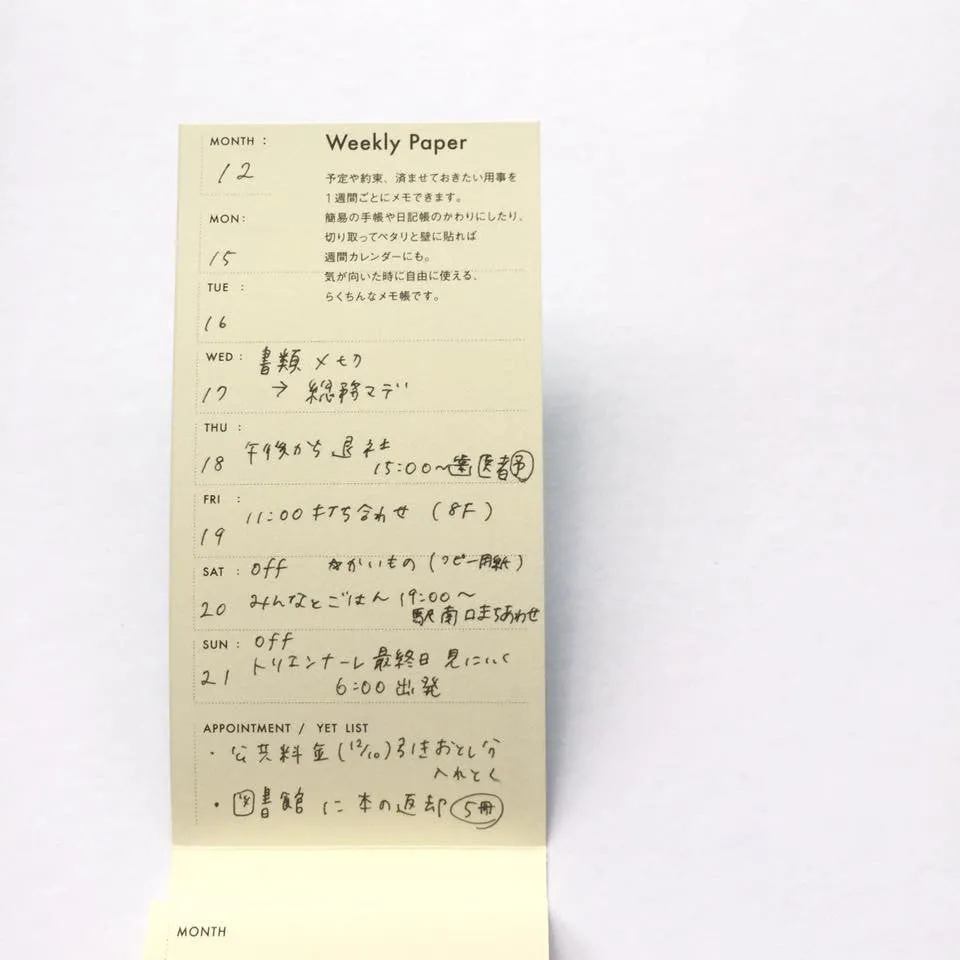 MONTH :
12
Weekly Paper
予定や約束、済ませておきたい用事を
1週間ごとにメモできます。
簡易の手帳や日記帳のかわりにしたり、
切り取ってペタリと壁に貼れば
週間カレンダーにも。
気が向いた時に自由に使える、
らくちんなメモ帳です。
MON:
15
TUE :
16
WED : 書類〆切
17 → 総務マデ
THU :
18 午後から退社
15:00〜歯医者予
FRI :
19 11:00 打ち合わせ (8F)
SAT : off かいもの (コピー用紙)
20 みんなとごはん 19:00〜
駅南口まちあわせ
SUN : off
21 トリエンナーレ最終日 見にいく
6:00 出発
APPOINTMENT / YET LIST
・公共料金(12/10)引きおとし分
入れとく
・図書館に本の返却 5冊
MONTH